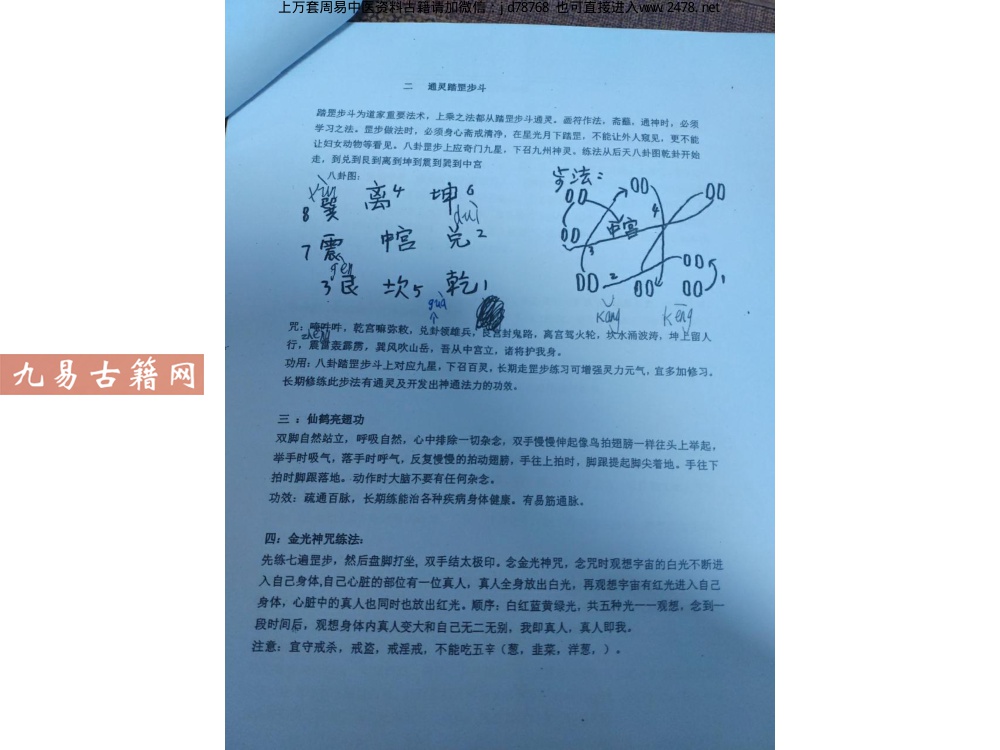 上万套周易中医资料古籍请加微信：jd78768 也可直接进入www.2478.net
二 通灵踏罡步斗
踏罡步斗为道家重要法术，上乘之法都从踏罡步斗通灵。画符作法，斋醮，通神时，必须
学习之法。罡步做法时，必须身心斋戒清净，在星光月下踏罡，不能让外人窥见，更不能
让妇女动物等看见。八卦罡步上应奇门九星，下召九州神灵。练法从后天八卦图乾卦开始
走，到兑到艮到离到坤到震到巽到中宫
八卦图：
步法：
xùn
8巽 离4 坤6
duì
7震 中宫 兑2
gèn
3艮 坎5 乾1
中宫
1
2
3
4
guà
kǎng kēng
咒： 乾宫嘛弥敕，兑卦领雄兵，艮宫封鬼路，离宫驾火轮，坎水涌波涛，坤上留人
zhèn
行，震雷轰霹雳，巽风吹山岳，吾从中宫立，诸将护我身。
功用：八卦踏罡步斗上对应九星，下召百灵，长期走罡步练习可增强灵力元气，宜多加修习。
长期修练此步法有通灵及开发出神通法力的功效。
九易古籍网
三 ：仙鹤亮翅功
双脚自然站立，呼吸自然，心中排除一切杂念，双手慢慢伸起像鸟拍翅膀一样往头上举起，
举手时吸气，落手时呼气，反复慢慢的拍动翅膀，手往上拍时，脚跟提起脚尖着地。手往下
拍时脚跟落地。动作时大脑不要有任何杂念。
功效：疏通百脉，长期练能治各种疾病身体健康。有易筋通脉。
四：金光神咒练法：
先练七遍罡步，然后盘脚打坐，双手结太极印。念金光神咒，念咒时观想宇宙的白光不断进
入自己身体,自己心脏的部位有一位真人，真人全身放出白光，再观想宇宙有红光进入自己
身体，心脏中的真人也同时也放出红光。顺序：白红蓝黄绿光，共五种光一一观想，念到一
段时间后，观想身体内真人变大和自己无二无别，我即真人，真人即我。
注意：宜守戒杀，戒盗，戒淫戒，不能吃五辛（葱，韭菜，洋葱，）。